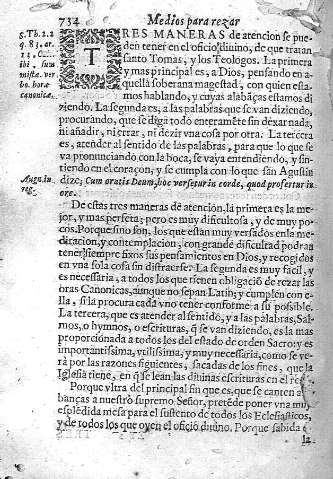 734 Medios para rezar
TRES MANERAS de atencion se pue-
den tener en el oficio diuino, de que tratan
santo Tomas, y los Teologos. La primera
y mas principal es, a Dios, pensando en a-
quella soberana magestad, con quien esta-
mos hablando, y cuyas alabãças estamos di
ziendo. La segunda es, a las palabras que se van diziendo,
procurando, que se diga todo enteramẽte sin dexar nada,
ni añadir, ni errar, ni dezir vna cosa por otra. La tercera
es, atender al sentido de las palabras, para que lo que se
va pronunciando con la boca, se vaya entendiendo, y sin-
tiendo en el coraçon, y se cumpla lo que san Agustin
dize, Cum oratis Deum, hoc versetur in corde, quod profertur in
ore.
De estas tres maneras de atencion, la primera es la me-
jor, y mas perfeta; pero es muy dificultosa, y de muy po-
cos. Porque sino son, los que estan muy versados en la me-
ditacion, y contemplacion, con grande dificultad podran
tener siempre fixos sus pensamientos en Dios, y recogidos
en vna sola cosa sin distraerse. La segunda es muy facil, y
es necessaria, a todos los que tienen obligacion de rezar las
oras Canonicas, aunque no sepan Latin, y cumplen con e-
lla, si la procura cada vno tener conforme a su possible.
La tercera, que es atender al sentido, y a las palabras, Sal-
mos, o hymnos, o escrituras, q̃ se van diziendo, es la mas
proporcionada a todos los del estado de orden Sacro: y es
importantissima, vtilissima, y muy necessaria, como se ve-
rà por las razones siguientes, sacadas de los fines, que la
Iglesia tiene, en q̃ se lean las diuinas escrituras en el re
Porque vltra del principal fin que es, que se canten a
banças a nuestro supremo Señor, pretẽde poner vna muy
esplẽdida mesa para el sustento de todos los Eclesiasticos,
y de todos los que oyen el oficio diuino. Porque sabida
la
s. Th. 2. 2
q. 83. ar.
13.
ibi sum
mistæ. ver
bo. horæ
canonicæ.
Aug. in
reg.